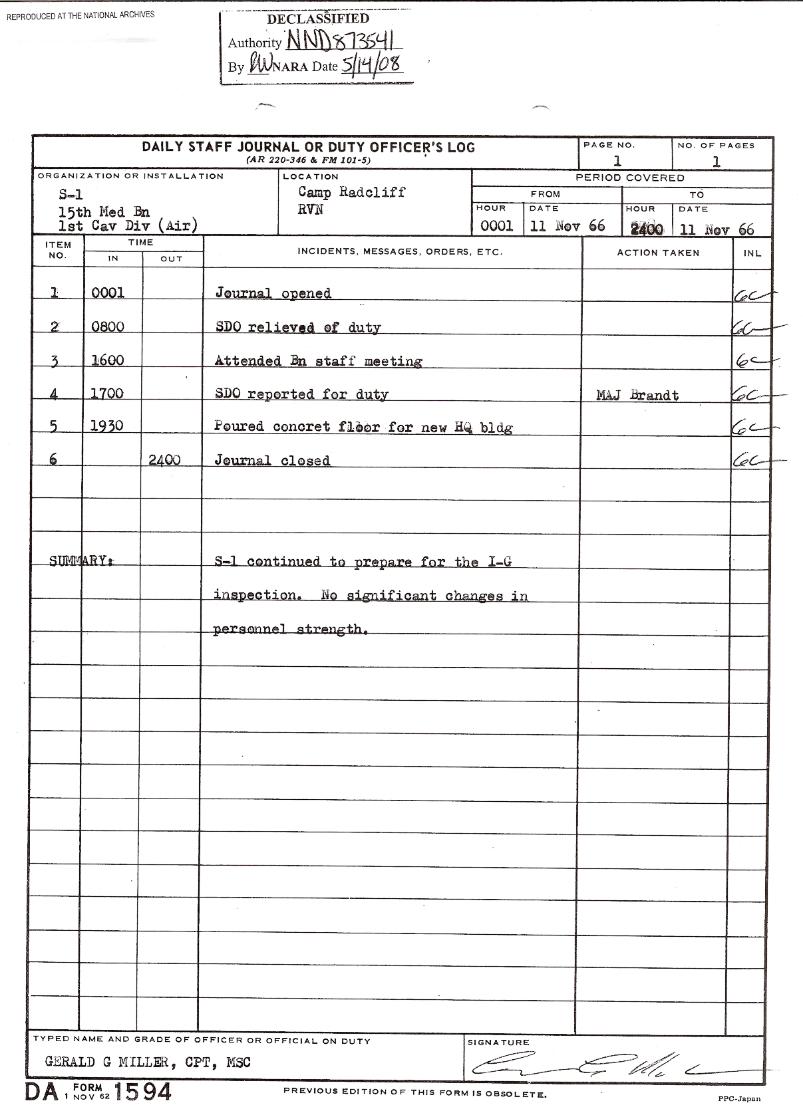 REPRODUCED AT THE NATIONAL ARCHIVES
DECLASSIFIED
Authority NND873541
By NARA Date 5/14/08
DAILY STAFF JOURNAL OR DUTY OFFICER'S LOG
(AR 220-346 & FM 101-5)
PAGE NO.
1
NO. OF PAGES
1
ORGANIZATION OR INSTALLATION
S-1
15th Med Bn
1st Cav Div (Air)
LOCATION
Camp Radcliff
RVN
PERIOD COVERED
FROM TO
HOUR DATE HOUR DATE
0001 11 Nov 66 2400 11 Nov 66
ITEM NO. TIME INCIDENTS, MESSAGES, ORDERS, ETC. ACTION TAKEN INL
IN OUT
1 0001 Journal opened
2 0800 SDO relieved of duty
3 1600 Attended Bn staff meeting
4 1700 SDO reported for duty MAJ Brandt
5 1930 Poured concret floor for new HQ bldg
6 2400 Journal closed
SUMMARY: S-1 continued to prepare for the I-G
inspection. No significant changes in
personnel strength.
TYPED NAME AND GRADE OF OFFICER OR OFFICIAL ON DUTY
GERALD G MILLER, CPT, MSC
SIGNATURE
DA FORM 1594
1 NOV 62
PREVIOUS EDITION OF THIS FORM IS OBSOLETE.
PPC-Japan